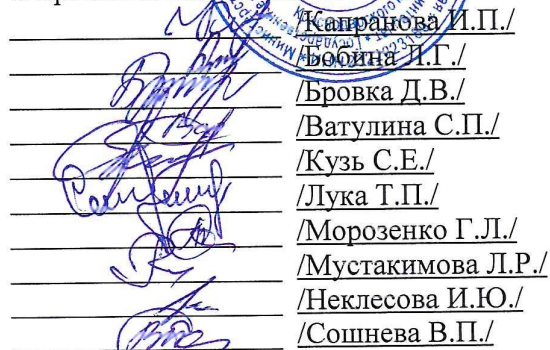 /Капранова И.П./
/Бобина Л.Г./
/Бровка Д.В./
/Ватулина С.П./
/Кузь С.Е./
/Лука Т.П./
/Морозенко Г.Л./
/Мустакимова Л.Р./
/Неклесова И.Ю./
/Сошнева В.П./